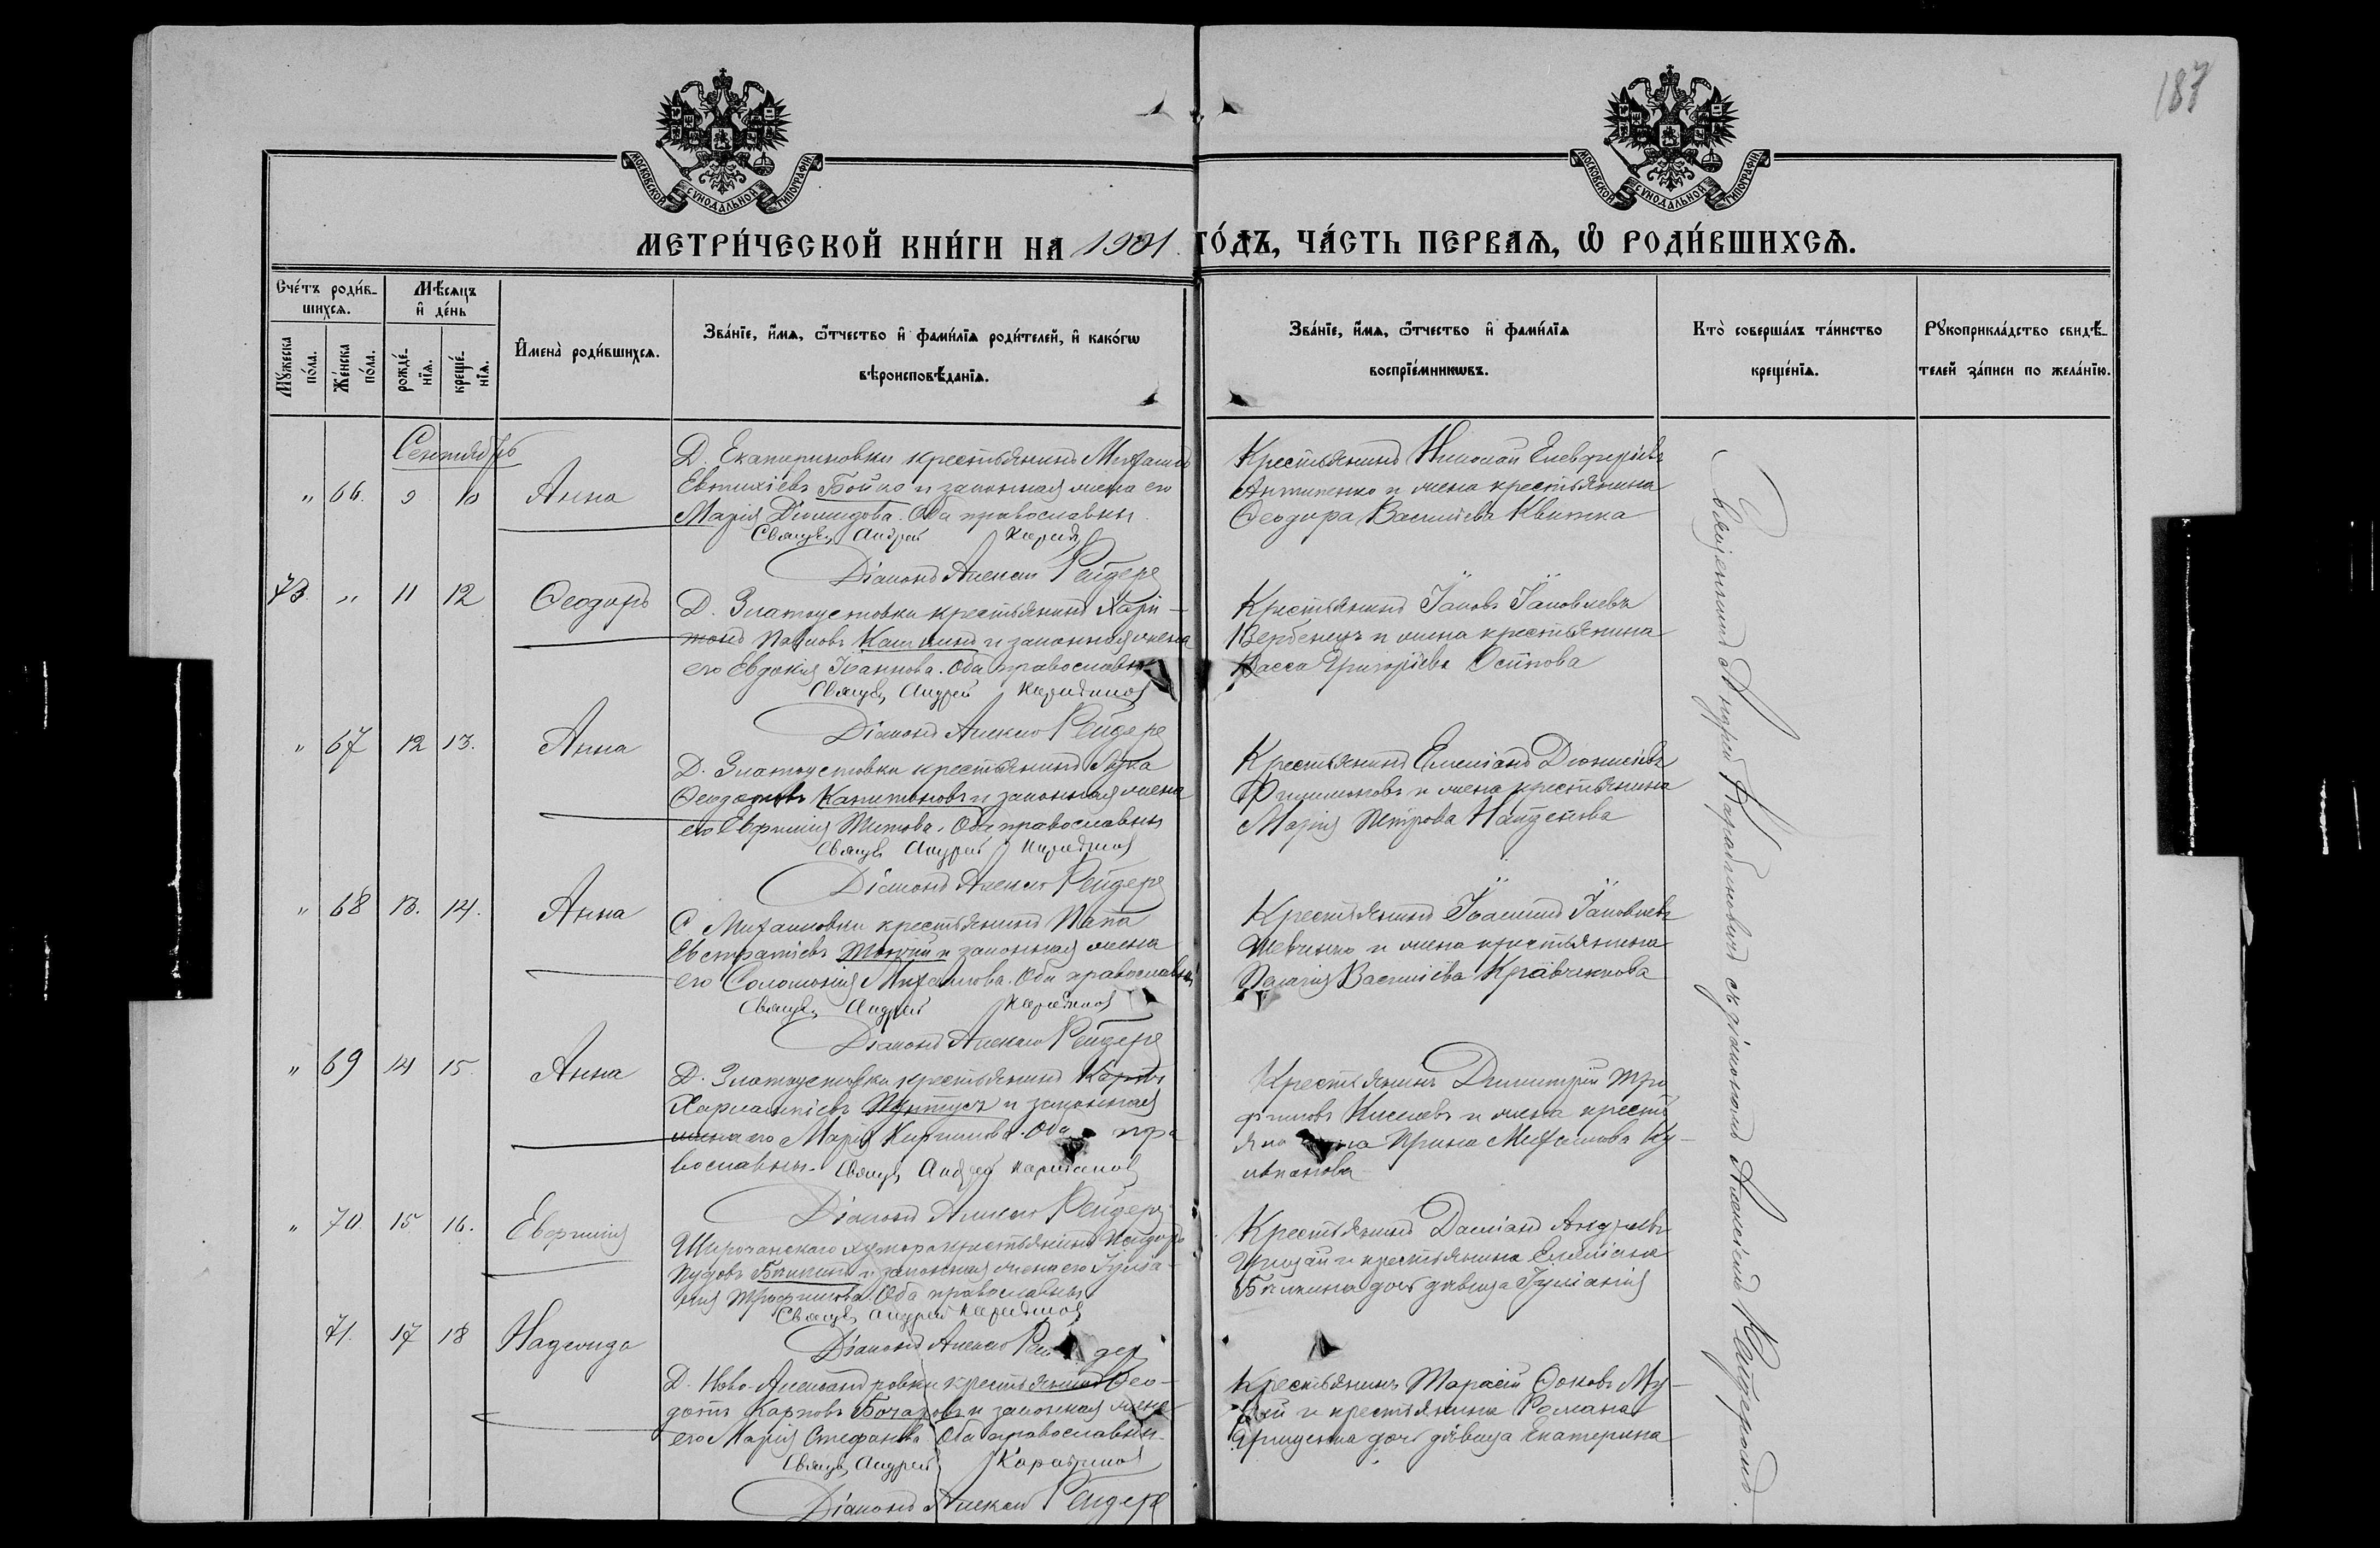 187
МОСКОВСКОЙ СУНОДАЛЬНОЙ ТИПОГРАФІИ
МОСКОВСКОЙ СУНОДАЛЬНОЙ ТИПОГРАФІИ
МЕТРИ́ЧЕСКОЙ КНИ́ГИ НА 1901 ГО́ДЪ, ЧА́СТЬ ПЕРВАѦ, Ѡ҆ РОДИ́ВШИХСѦ.
Сче́тъ роди́в-
шихсѧ.
Мѣ́сѧцъ
и҆ де́нь
Мꙋ́жеска
по́ла.
Же́нска
по́ла.
рожде́-
нїѧ.
креще́-
нїѧ.
И҆мена̀ роди́вшихсѧ.
Зва́нїе, и҆́мѧ, ѻ҆́тчество и҆ фами́лїѧ роди́телей, и҆ како́гѡ
вѣроисповѣ́данїѧ.
Зва́нїе, и҆́мѧ, ѻ҆́тчество и҆ фами́лїѧ
воспрїе́мникѡвъ.
Кто̀ соверша́лъ та́инство
креще́нїѧ.
Рꙋкоприкла́дство свидѣ́-
телей за́писи по жела́нїю.
Сентябрь
" 66. 9 10 Анна
Д. Екатериновки крестьянинъ Михаилъ
Евтихіевъ Бойко и законная жена его
Марія Діомидова. Оба православны.
Свящ. Андрей
Діаконъ Алексій Рейдеръ
Крестьянинъ Николай Елевферіевъ
Антипенко и жена крестьянина
Ѳеодора Васильева Квитка
73 " 11 12 Ѳеодоръ
Д. Златоустовки крестьянинъ Хари-
тонъ Павловъ и законная жена
его Евдокія Іоаннова. Оба православны
Свящ. Андрей
Діаконъ Алексій Рейдеръ
Крестьянинъ Іаковъ Іаковлевъ
Вербенецъ и жена крестьянина
Васса Григоріева Осипова
" 67 12 13. Анна
Д. Златоустовки крестьянинъ Лука
Капитоновъ и законная жена
его Евфимія Титова. Оба православны
Свящ. Андрей
Діаконъ Алексій Рейдеръ
Крестьянинъ Емеліанъ Діонисіевъ
и жена крестьянина
Марія Петрова Найденова
" 68 13. 14. Анна
С Михайловки крестьянинъ
Евстратіевъ и законная жена
его Соломонія Михайлова. Оба православны
Свящ. Андрей
Діаконъ Алексій Рейдеръ
Крестьянинъ Іоакимъ Іаковлевъ
Шевченко и жена крестьянина
Пелагія Васильева Кравченкова
" 69 14 15. Анна
Д. Златоустовки крестьянинъ Карпъ
Харлампіевъ и законная
жена его Марія Кириллова. Оба пра
вославны. Свящ. Андрей
Діаконъ Алексій Рейдеръ
Крестьянинъ Димитрій Тро
фимовъ Киселевъ и жена кресть
Ирина Михайлова
" 70. 15 16. Евфимія
хутора крестьянинъ
и законная жена его Іуліа-
нія Трофимова. Оба православны
Свящ. Андрей
Діаконъ Алексій Рейдеръ
Крестьянинъ Даміанъ Андреевъ
и крестьянина Емиліана
дочь дѣвица Іуліанія
71. 17 18 Надежда
Д. Ново-Александровки крестьянинъ Ѳео-
дотъ Карповъ Бочаровъ и законная жена
его Марія Стефанова. Оба православны.
Свящ. Андрей
Діаконъ Алексій Рейдеръ
Крестьянинъ Тарасій
и крестьянина Романа
Грищенка дочь дѣвица Екатерина
Священникъ Андрей съ діакономъ Алексіемъ Рейдеромъ.